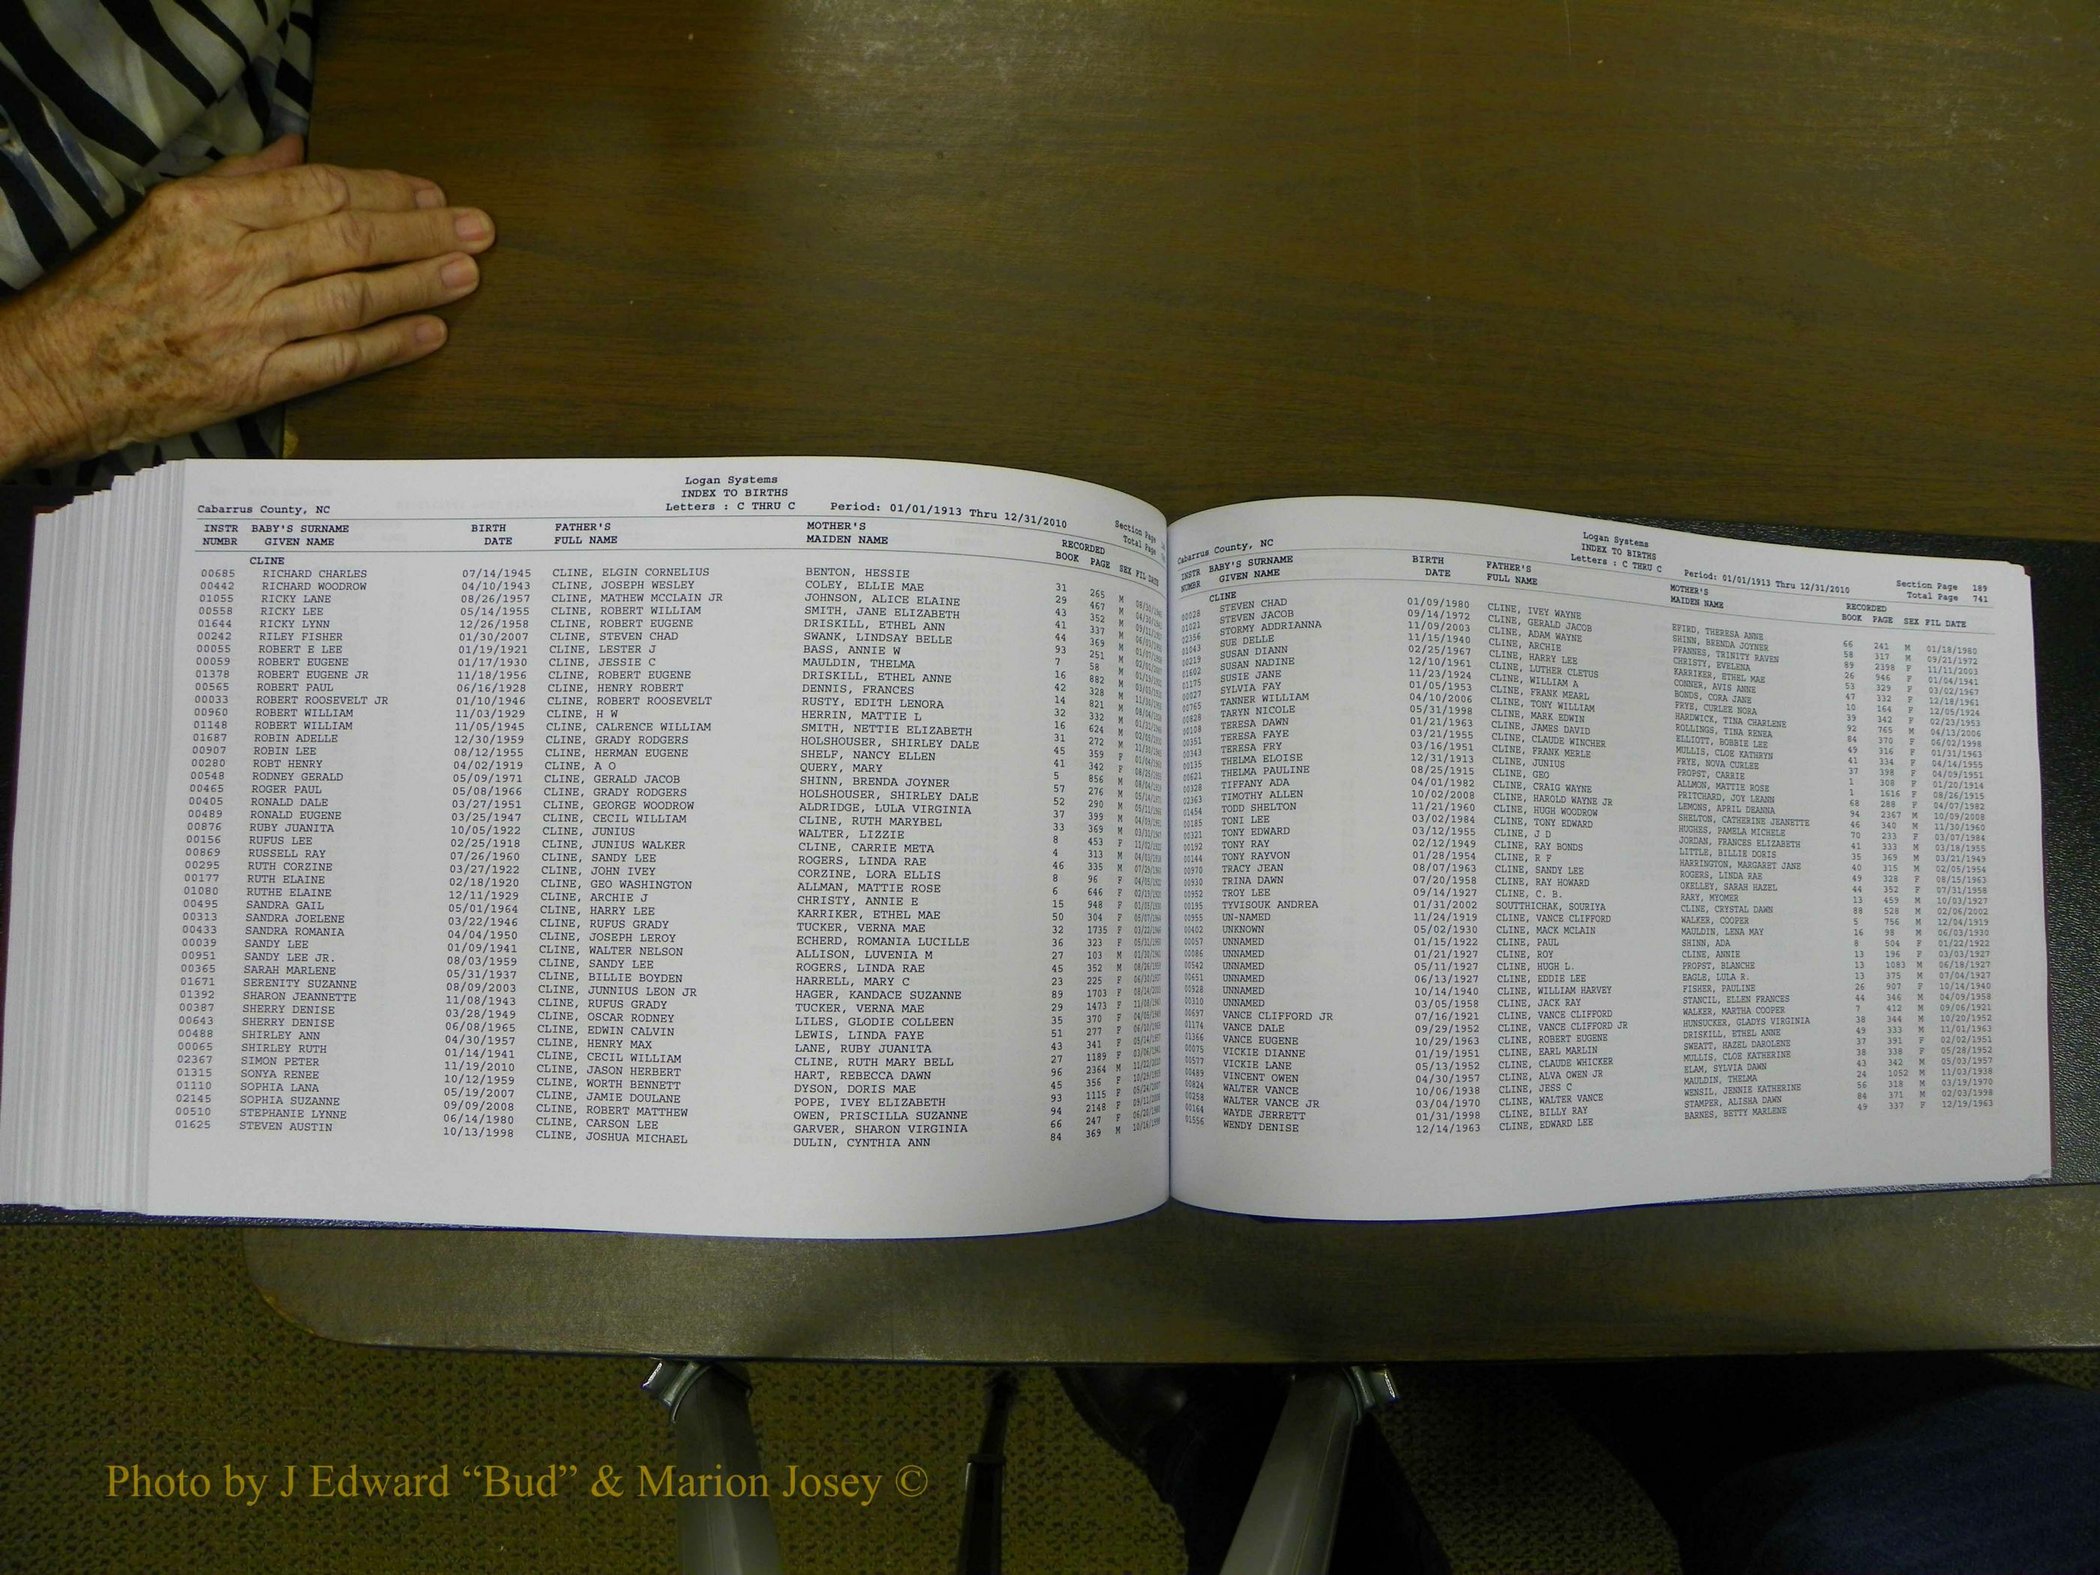 Logan Systems
INDEX TO BIRTHS
Cabarrus County, NC Letters : C THRU C Period: 01/01/1913 Thru 12/31/2010 Section Page
Total Page
INSTR BABY'S SURNAME BIRTH FATHER'S MOTHER'S RECORDED
NUMBR GIVEN NAME DATE FULL NAME MAIDEN NAME BOOK PAGE SEX FIL DATE
CLINE
00685 RICHARD CHARLES 07/14/1945 CLINE, ELGIN CORNELIUS BENTON, HESSIE 31 265 M
00442 RICHARD WOODROW 04/10/1943 CLINE, JOSEPH WESLEY COLEY, ELLIE MAE 29 467 M
01055 RICKY LANE 08/26/1957 CLINE, MATHEW MCCLAIN JR JOHNSON, ALICE ELAINE 43 352 M
00558 RICKY LEE 05/14/1955 CLINE, ROBERT WILLIAM SMITH, JANE ELIZABETH 41 337 M
01644 RICKY LYNN 12/26/1958 CLINE, ROBERT EUGENE DRISKILL, ETHEL ANN 44 369 M
00242 RILEY FISHER 01/30/2007 CLINE, STEVEN CHAD SWANK, LINDSAY BELLE 93 251 M
00055 ROBERT E LEE 01/19/1921 CLINE, LESTER J BASS, ANNIE W 7 58 M
00059 ROBERT EUGENE 01/17/1930 CLINE, JESSIE C MAULDIN, THELMA 16 882 M
01378 ROBERT EUGENE JR 11/18/1956 CLINE, ROBERT EUGENE DRISKILL, ETHEL ANNE 42 328 M
00565 ROBERT PAUL 06/16/1928 CLINE, HENRY ROBERT DENNIS, FRANCES 14 821 M
00033 ROBERT ROOSEVELT JR 01/10/1946 CLINE, ROBERT ROOSEVELT RUSTY, EDITH LENORA 32 332 M
00960 ROBERT WILLIAM 11/03/1929 CLINE, H W HERRIN, MATTIE L 16 624 M
01148 ROBERT WILLIAM 11/05/1945 CLINE, CALRENCE WILLIAM SMITH, NETTIE ELIZABETH 31 272 M
01687 ROBIN ADELLE 12/30/1959 CLINE, GRADY RODGERS HOLSHOUSER, SHIRLEY DALE 45 359 F
00907 ROBIN LEE 08/12/1955 CLINE, HERMAN EUGENE SHELF, NANCY ELLEN 41 342 F
00280 ROBT HENRY 04/02/1919 CLINE, A O QUERY, MARY 5 856 M
00548 RODNEY GERALD 05/09/1971 CLINE, GERALD JACOB SHINN, BRENDA JOYNER 57 276 M
00465 ROGER PAUL 05/08/1966 CLINE, GRADY RODGERS HOLSHOUSER, SHIRLEY DALE 52 290 M
00405 RONALD DALE 03/27/1951 CLINE, GEORGE WOODROW ALDRIDGE, LULA VIRGINIA 37 399 M
00489 RONALD EUGENE 03/25/1947 CLINE, CECIL WILLIAM CLINE, RUTH MARYBEL 33 369 M
00876 RUBY JUANITA 10/05/1922 CLINE, JUNIUS WALTER, LIZZIE 8 453 F
00156 RUFUS LEE 02/25/1918 CLINE, JUNIUS WALKER CLINE, CARRIE META 4 313 M
00869 RUSSELL RAY 07/26/1960 CLINE, SANDY LEE ROGERS, LINDA RAE 46 335 M
00295 RUTH CORZINE 03/27/1922 CLINE, JOHN IVEY CORZINE, LORA ELLIS 8 96 F
00177 RUTH ELAINE 02/18/1920 CLINE, GEO WASHINGTON ALLMAN, MATTIE ROSE 6 646 F
01080 RUTHE ELAINE 12/11/1929 CLINE, ARCHIE J CHRISTY, ANNIE E 15 948 F
00495 SANDRA GAIL 05/01/1964 CLINE, HARRY LEE KARRIKER, ETHEL MAE 50 304 F
00313 SANDRA JOELENE 03/22/1946 CLINE, RUFUS GRADY TUCKER, VERNA MAE 32 1735 F
00433 SANDRA ROMANIA 04/04/1950 CLINE, JOSEPH LEROY ECHERD, ROMANIA LUCILLE 36 323 F
00039 SANDY LEE 01/09/1941 CLINE, WALTER NELSON ALLISON, LUVENIA M 27 103 M
00951 SANDY LEE JR. 08/03/1959 CLINE, SANDY LEE ROGERS, LINDA RAE 45 352 M
00365 SARAH MARLENE 05/31/1937 CLINE, BILLIE BOYDEN HARRELL, MARY C 23 225 F
01671 SERENITY SUZANNE 08/09/2003 CLINE, JUNNIUS LEON JR HAGER, KANDACE SUZANNE 89 1703 F
01392 SHARON JEANNETTE 11/08/1943 CLINE, RUFUS GRADY TUCKER, VERNA MAE 29 1473 F
00387 SHERRY DENISE 03/28/1949 CLINE, OSCAR RODNEY LILES, GLODIE COLLEEN 35 370 F
00643 SHERRY DENISE 06/08/1965 CLINE, EDWIN CALVIN LEWIS, LINDA FAYE 51 277 F
00488 SHIRLEY ANN 04/30/1957 CLINE, HENRY MAX LANE, RUBY JUANITA 43 341 F
00065 SHIRLEY RUTH 01/14/1941 CLINE, CECIL WILLIAM CLINE, RUTH MARY BELL 27 1189 F
02367 SIMON PETER 11/19/2010 CLINE, JASON HERBERT HART, REBECCA DAWN 96 2364 M
01315 SONYA RENEE 10/12/1959 CLINE, WORTH BENNETT DYSON, DORIS MAE 45 356 F
01110 SOPHIA LANA 05/19/2007 CLINE, JAMIE DOULANE POPE, IVEY ELIZABETH 93 1115 F
02145 SOPHIA SUZANNE 09/09/2008 CLINE, ROBERT MATTHEW OWEN, PRISCILLA SUZANNE 94 2148 F
00510 STEPHANIE LYNNE 06/14/1980 CLINE, CARSON LEE GARVER, SHARON VIRGINIA 66 247 F
01625 STEVEN AUSTIN 10/13/1998 CLINE, JOSHUA MICHAEL DULIN, CYNTHIA ANN 84 369 M
Logan Systems
INDEX TO BIRTHS
Cabarrus County, NC Letters : C THRU C Period: 01/01/1913 Thru 12/31/2010 Section Page 189
Total Page 741
INSTR BABY'S SURNAME BIRTH FATHER'S MOTHER'S RECORDED
NUMBR GIVEN NAME DATE FULL NAME MAIDEN NAME BOOK PAGE SEX FIL DATE
CLINE
00028 STEVEN CHAD 01/09/1980 CLINE, IVEY WAYNE EFIRD, THERESA ANNE 66 241 M 01/18/1980
01021 STEVEN JACOB 09/14/1972 CLINE, GERALD JACOB SHINN, BRENDA JOYNER 58 317 M 09/21/1972
02356 STORMY ADDRIANNA 11/09/2003 CLINE, ADAM WAYNE PFANNES, TRINITY RAVEN 89 2398 F 11/11/2003
01043 SUE DELLE 11/15/1940 CLINE, ARCHIE CHRISTY, EVELENA 26 946 F 01/04/1941
00219 SUSAN DIANN 02/25/1967 CLINE, HARRY LEE KARRIKER, ETHEL MAE 53 329 F 03/02/1967
01602 SUSAN NADINE 12/10/1961 CLINE, LUTHER CLETUS CONNER, AVIS ANNE 47 332 F 12/18/1961
01175 SUSIE JANE 11/23/1924 CLINE, WILLIAM A BONDS, CORA JANE 10 164 F 12/05/1924
00027 SYLVIA FAY 01/05/1953 CLINE, FRANK MEARL FRYE, CURLEE NORA 39 342 F 02/23/1953
00765 TANNER WILLIAM 04/10/2006 CLINE, TONY WILLIAM HARDWICK, TINA CHARLENE 92 765 M 04/13/2006
00828 TARYN NICOLE 05/31/1998 CLINE, MARK EDWIN ROLLINGS, TINA RENEA 84 370 F 06/02/1998
00108 TERESA DAWN 01/21/1963 CLINE, JAMES DAVID ELLIOTT, BOBBIE LEE 49 316 F 01/31/1963
00351 TERESA FAYE 03/21/1955 CLINE, CLAUDE WINCHER MULLIS, CLOE KATHRYN 41 334 F 04/14/1955
00343 TERESA FRY 03/16/1951 CLINE, FRANK MERLE FRYE, NOVA CURLEE 37 398 F 04/09/1951
00135 THELMA ELOISE 12/31/1913 CLINE, JUNIUS PROPST, CARRIE 1 308 F 01/20/1914
00621 THELMA PAULINE 08/25/1915 CLINE, GEO ALLMON, MATTIE ROSE 1 1616 F 08/26/1915
00328 TIFFANY ADA 04/01/1982 CLINE, CRAIG WAYNE PRITCHARD, JOY LEANN 68 288 F 04/07/1982
02363 TIMOTHY ALLEN 10/02/2008 CLINE, HAROLD WAYNE JR LEMONS, APRIL DEANNA 94 2367 M 10/09/2008
01454 TODD SHELTON 11/21/1960 CLINE, HUGH WOODROW SHELTON, CATHERINE JEANETTE 46 340 M 11/30/1960
00185 TONI LEE 03/02/1984 CLINE, TONY EDWARD HUGHES, PAMELA MICHELE 70 233 F 03/07/1984
00321 TONY EDWARD 03/12/1955 CLINE, J D JORDAN, FRANCES ELIZABETH 41 333 M 03/18/1955
00192 TONY RAY 02/12/1949 CLINE, RAY BONDS LITTLE, BILLIE DORIS 35 369 M 03/21/1949
00144 TONY RAYVON 01/28/1954 CLINE, R F HARRINGTON, MARGARET JANE 40 315 M 02/05/1954
00970 TRACY JEAN 08/07/1963 CLINE, SANDY LEE ROGERS, LINDA RAE 49 328 F 08/15/1963
00930 TRINA DAWN 07/20/1958 CLINE, RAY HOWARD OKELLEY, SARAH HAZEL 44 352 F 07/31/1958
00952 TROY LEE 09/14/1927 CLINE, C. B. RARY, MYOMER 13 459 M 10/03/1927
00195 TYVISOUK ANDREA 01/31/2002 SOUTTHICHAK, SOURIYA CLINE, CRYSTAL DAWN 88 528 M 02/06/2002
00955 UN-NAMED 11/24/1919 CLINE, VANCE CLIFFORD WALKER, COOPER 5 756 M 12/04/1919
00402 UNKNOWN 05/02/1930 CLINE, MACK MCLAIN MAULDIN, LENA MAY 16 98 M 06/03/1930
00057 UNNAMED 01/15/1922 CLINE, PAUL SHINN, ADA 8 504 F 01/22/1922
00086 UNNAMED 01/21/1927 CLINE, ROY CLINE, ANNIE 13 196 F 03/03/1927
00542 UNNAMED 05/11/1927 CLINE, HUGH L. PROPST, BLANCHE 13 1083 M 06/18/1927
00651 UNNAMED 06/13/1927 CLINE, EDDIE LEE EAGLE, LULA R. 13 375 M 07/04/1927
00928 UNNAMED 10/14/1940 CLINE, WILLIAM HARVEY FISHER, PAULINE 26 907 F 10/14/1940
00310 UNNAMED 03/05/1958 CLINE, JACK RAY STANCIL, ELLEN FRANCES 44 346 M 04/09/1958
00697 VANCE CLIFFORD JR 07/16/1921 CLINE, VANCE CLIFFORD WALKER, MARTHA COOPER 7 412 M 09/06/1921
01174 VANCE DALE 09/29/1952 CLINE, VANCE CLIFFORD JR HUNSUCKER, GLADYS VIRGINIA 38 344 M 10/20/1952
01366 VANCE EUGENE 10/29/1963 CLINE, ROBERT EUGENE DRISKILL, ETHEL ANNE 49 333 M 11/01/1963
00075 VICKIE DIANNE 01/19/1951 CLINE, EARL MARLIN SWEATT, HAZEL DAROLENE 37 391 F 02/02/1951
00577 VICKIE LANE 05/13/1952 CLINE, CLAUDE WHICKER MULLIS, CLOE KATHERINE 38 338 F 05/28/1952
00489 VINCENT OWEN 04/30/1957 CLINE, ALVA OWEN JR ELAM, SYLVIA DAWN 43 342 M 05/03/1957
00824 WALTER VANCE 10/06/1938 CLINE, JESS C MAULDIN, THELMA 24 1052 M 11/03/1938
00258 WALTER VANCE JR 03/04/1970 CLINE, WALTER VANCE WENSIL, JENNIE KATHERINE 56 318 M 03/19/1970
00164 WAYDE JERRETT 01/31/1998 CLINE, BILLY RAY STAMPER, ALISHA DAWN 84 371 M 02/03/1998
01556 WENDY DENISE 12/14/1963 CLINE, EDWARD LEE BARNES, BETTY MARLENE 49 337 F 12/19/1963
Photo by J Edward “Bud” & Marion Josey ©